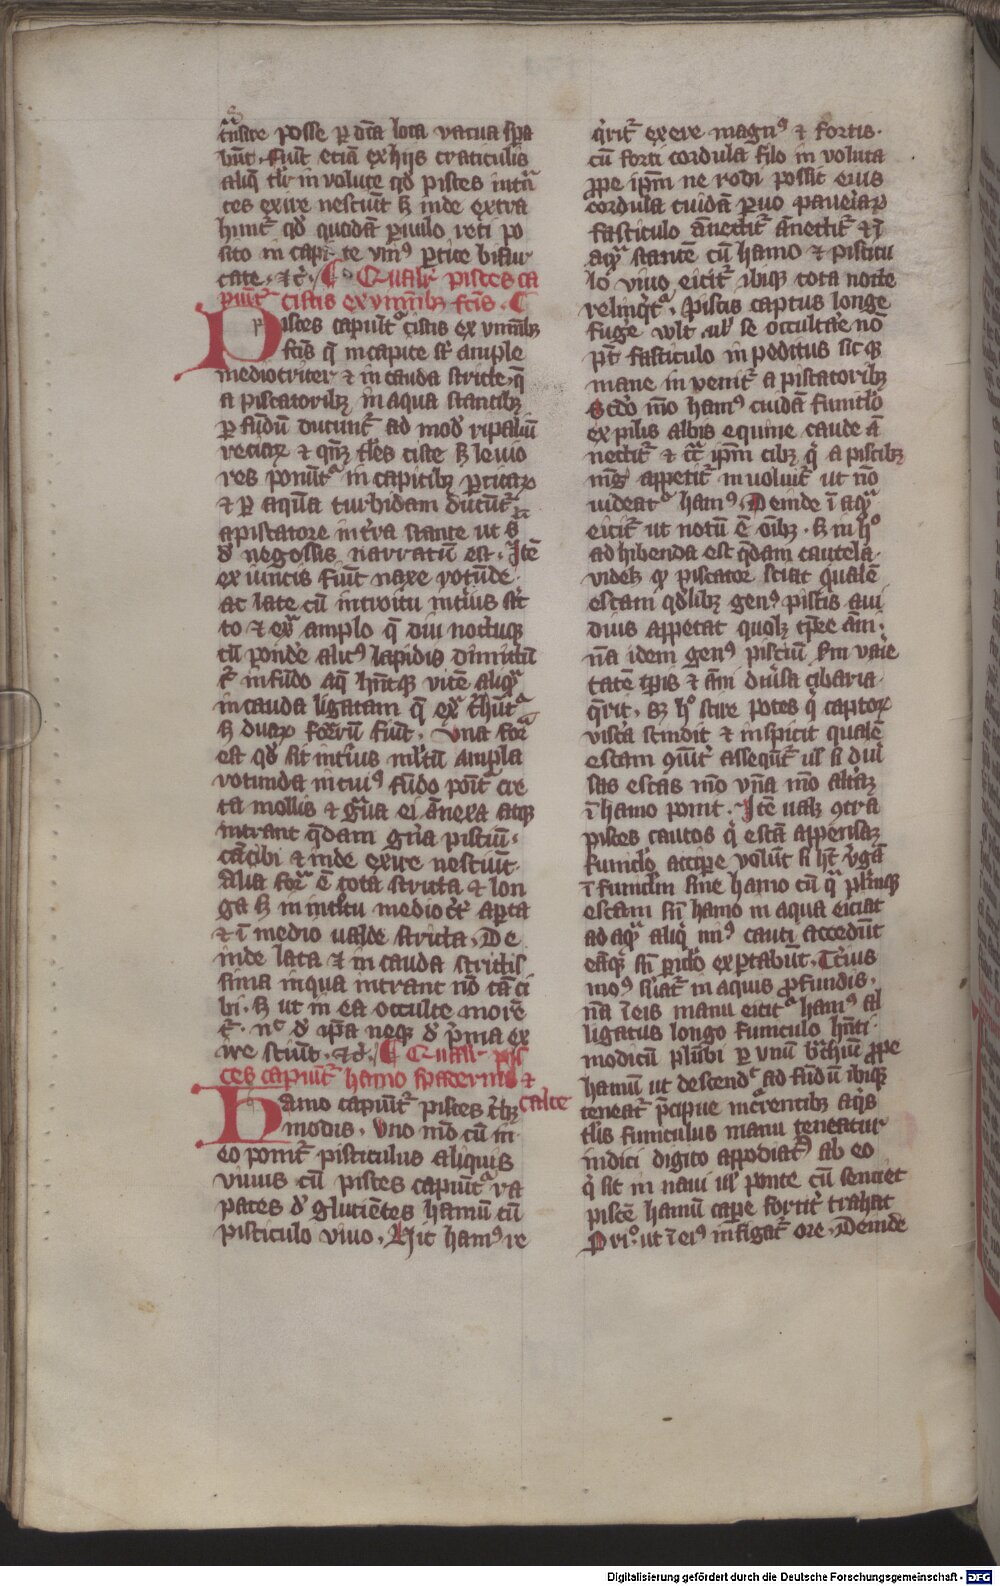 tͣnsire posse ꝑ dc̄a loca vacua spa
būt · fiūt etiā ex hijs craticulis
aliq̄ tl̄r in volute qd̛ pisces intͣn
tes exire nesciūt ꝫ inde extra
hūnt᷑ qd̛ quidā ꝑuulo reti po
sito in capi te vniꝰ ꝑtice bifur
cate · ⁊c̄ · ¶ Qualr̄ pisces ca
piūt᷑ cistis ex vimīibꝫ fc̄is · ¶
Pisces capiūt᷑ cistis ex vimīibꝫ
fc̄is q̄ in capite st̄ ample
mediocriter ⁊ in cauda stricte · q̄
a piscatoribꝫ in aqua stantibꝫ
ꝑ fūdū ducunt᷑ ad mod̄ ripaliū
reciaꝝ ⁊ qn̄qꝫ tl̄es ciste ꝫ leuio
res ponūt᷑ in capitibꝫ ꝑticaꝝ
⁊ ꝑ aquā turbidam ducūt᷑
a piscatore in tr̄a stante ut ꝫ
d̄ negossis narratū est · Itē
ex iuncis fiūt naxe rotūde
ac late cū introitu int̛ius str̄
to ⁊ ex̄ amplo q̄ diu noctuqꝫ
cū ponde alicꝰ lapidis dimittū
t᷑ in fūdo aq̄ hn̄tqꝫ vitē aliqͣ
in cauda ligatam q̄ exͣ tͣhūt᷑
ꝫ duaꝝ formaꝝ fiūt · Vna forͣ
est qd̛ sit int̛ius ml̛tū ampla
rotunda in cuiꝰ fūdo ponit᷑ cre
ta mollis ⁊ gͣna ei ānexa atqꝫ
intrant q̄dam gn̄a pisciū ·
cā cibi ⁊ inde exire nesciūt
Alia forͣ ē tota stricta ⁊ lon
ga ꝫ in int̛itu medioc̛t̛ apta
⁊ ī medio ualde stricta · De
inde lata ⁊ in cauda strictis
sima in qua intrant nō cā ci
bi · ꝫ ut in ea occulte morē
t᷑ · nͨ d̄ ip̄a neqꝫ d̄ p̄ma ex
ire sciūt · ⁊c̄ · ¶ Qualr̄ pis
ces capiūt᷑ hamo spaderno ⁊
calce
Hamo capiūt᷑ pisces t̛bꝫ
modis · Vno mō cū in
eo ponit᷑ pisciculus aliquis
viuus cū pisces capiūt᷑ ra
paces d̄ glutiētes hamū cū
pisciculo viuo · Hic hamꝰ re
q̄rit᷑ exere magnꝰ ⁊ fortis ·
cū forti cordula filo in voluta
ꝓpe ip̄m ne rodi possit eius
cordula cuidā ꝑuo paueiaꝝ
fasciculo ānectit᷑ ānectit᷑ ⁊ ī
aqͣ stantē cū hamo ⁊ piscicu
lo viuo eicit᷑ ibiqꝫ tota nocte
relinqͥt᷑ · Piscis captus longe
fug̛e vlt · ul̛ se occultare nō
pt̄ fasciculo inpeditus sicqꝫ
mane in venit᷑ a piscatoribꝫ
Scd̛o mō hamꝰ cuidā funiclo
ex pilis albis equine caude ā
nectit᷑ ⁊ cͣ ip̄m cibꝫ qͥ a piscibꝫ
magͥ appetit᷑ in voluit᷑ ut nō
uideat᷑ hamꝰ · Deinde ī aqͣ
eicit᷑ ut notū ē oībꝫ · ꝫ in hͦ
ad hibenda est q̄dam cautela ·
videlꝫ qꝫ piscator sciat qualē
escam qd̛libꝫ genꝰ piscis aui
dius appetat quolꝫ tp̄re āni ·
nā idem genꝰ pisciū sm̄ varie
tate tp̄is ⁊ āni diưsa cibaria
q̄rit · ꝫ hͦ scire potes qͥ captoꝝ
viscͣa scindit ⁊ inspicit qualē
escam ꝯuīt᷑ asseqūt᷑ ul̛ si diư
sas escas mō vnā mō altaꝫ
ī hamo ponit · Itē ualꝫ ꝯtra
pisces cautos qͥ escā appensaꝫ
funiclo accipe volūt si hꝫ v̛gā
ī funiclm sine hamo cū qͣ pluriēs
escam sn̄ hamo in aqua eiciat
ad aqͣ aliqͥ miꝰ cauti accedūt
eāqꝫ sn̄ piclo exptabūt · Tc̛ius
moꝰ s̛uat᷑ in aquis ꝓfundis ·
nā ī eis manu eicit᷑ hamꝰ al
ligatus longo funiculo hn̄ti
modicū plūbi ꝑ vnū brͣchiū ꝓpe
hamū ut descendͣt ad fūdū ibiqꝫ
teneat᷑ p̄cipue incr̛entibꝫ aq̛s
tl̄is funiculus manu teneatur
indici digito appodiat᷑ ab eo
qͥ sit in naui ul̛ ponte cū senciet
piscē hamū cape fortit̛ trahat
Priͦ · ut ī eiꝰ infigat᷑ ore · Deinde
Digitalisierung gefördert durch die Deutsche Forschungsgemeinschaft - DFG